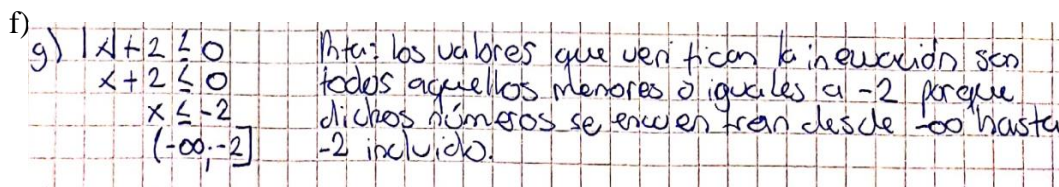 f)
g) |x|+2 ≤ 0 Rta: los valores que verifican la inecuación son
x+2 ≤ 0 todos aquellos menores o iguales a -2 porque
x ≤ -2 dichos números se encuentran desde -∞ hasta
(-∞;-2] -2 incluido.